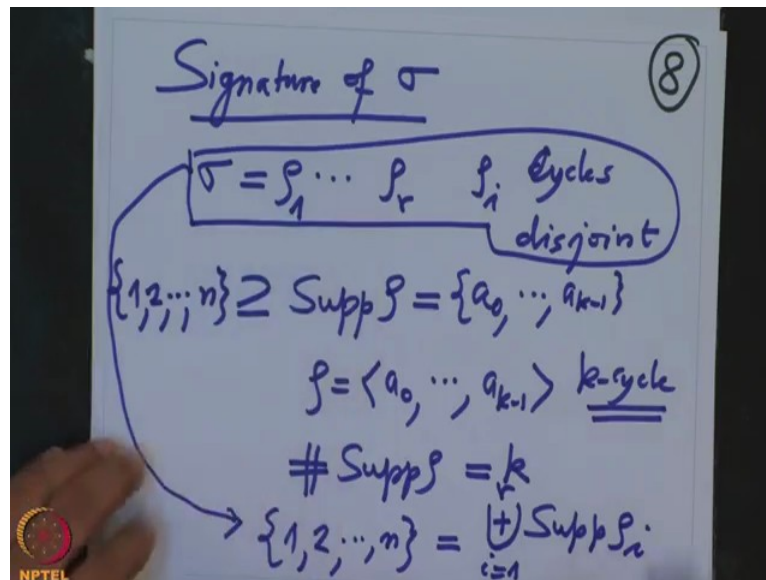 Signature of σ
8
σ = ρ₁ ⋯ ρᵣ ρᵢ Cycles
disjoint
{1,2,⋯,n} ⊇ Supp ρ = {a₀, ⋯, aₖ₋₁}
ρ = ⟨a₀, ⋯, aₖ₋₁⟩ k-cycle
# Supp ρ = k
{1,2,⋯,n} = ⨄ᵢ₌₁ʳ Supp ρᵢ
NPTEL